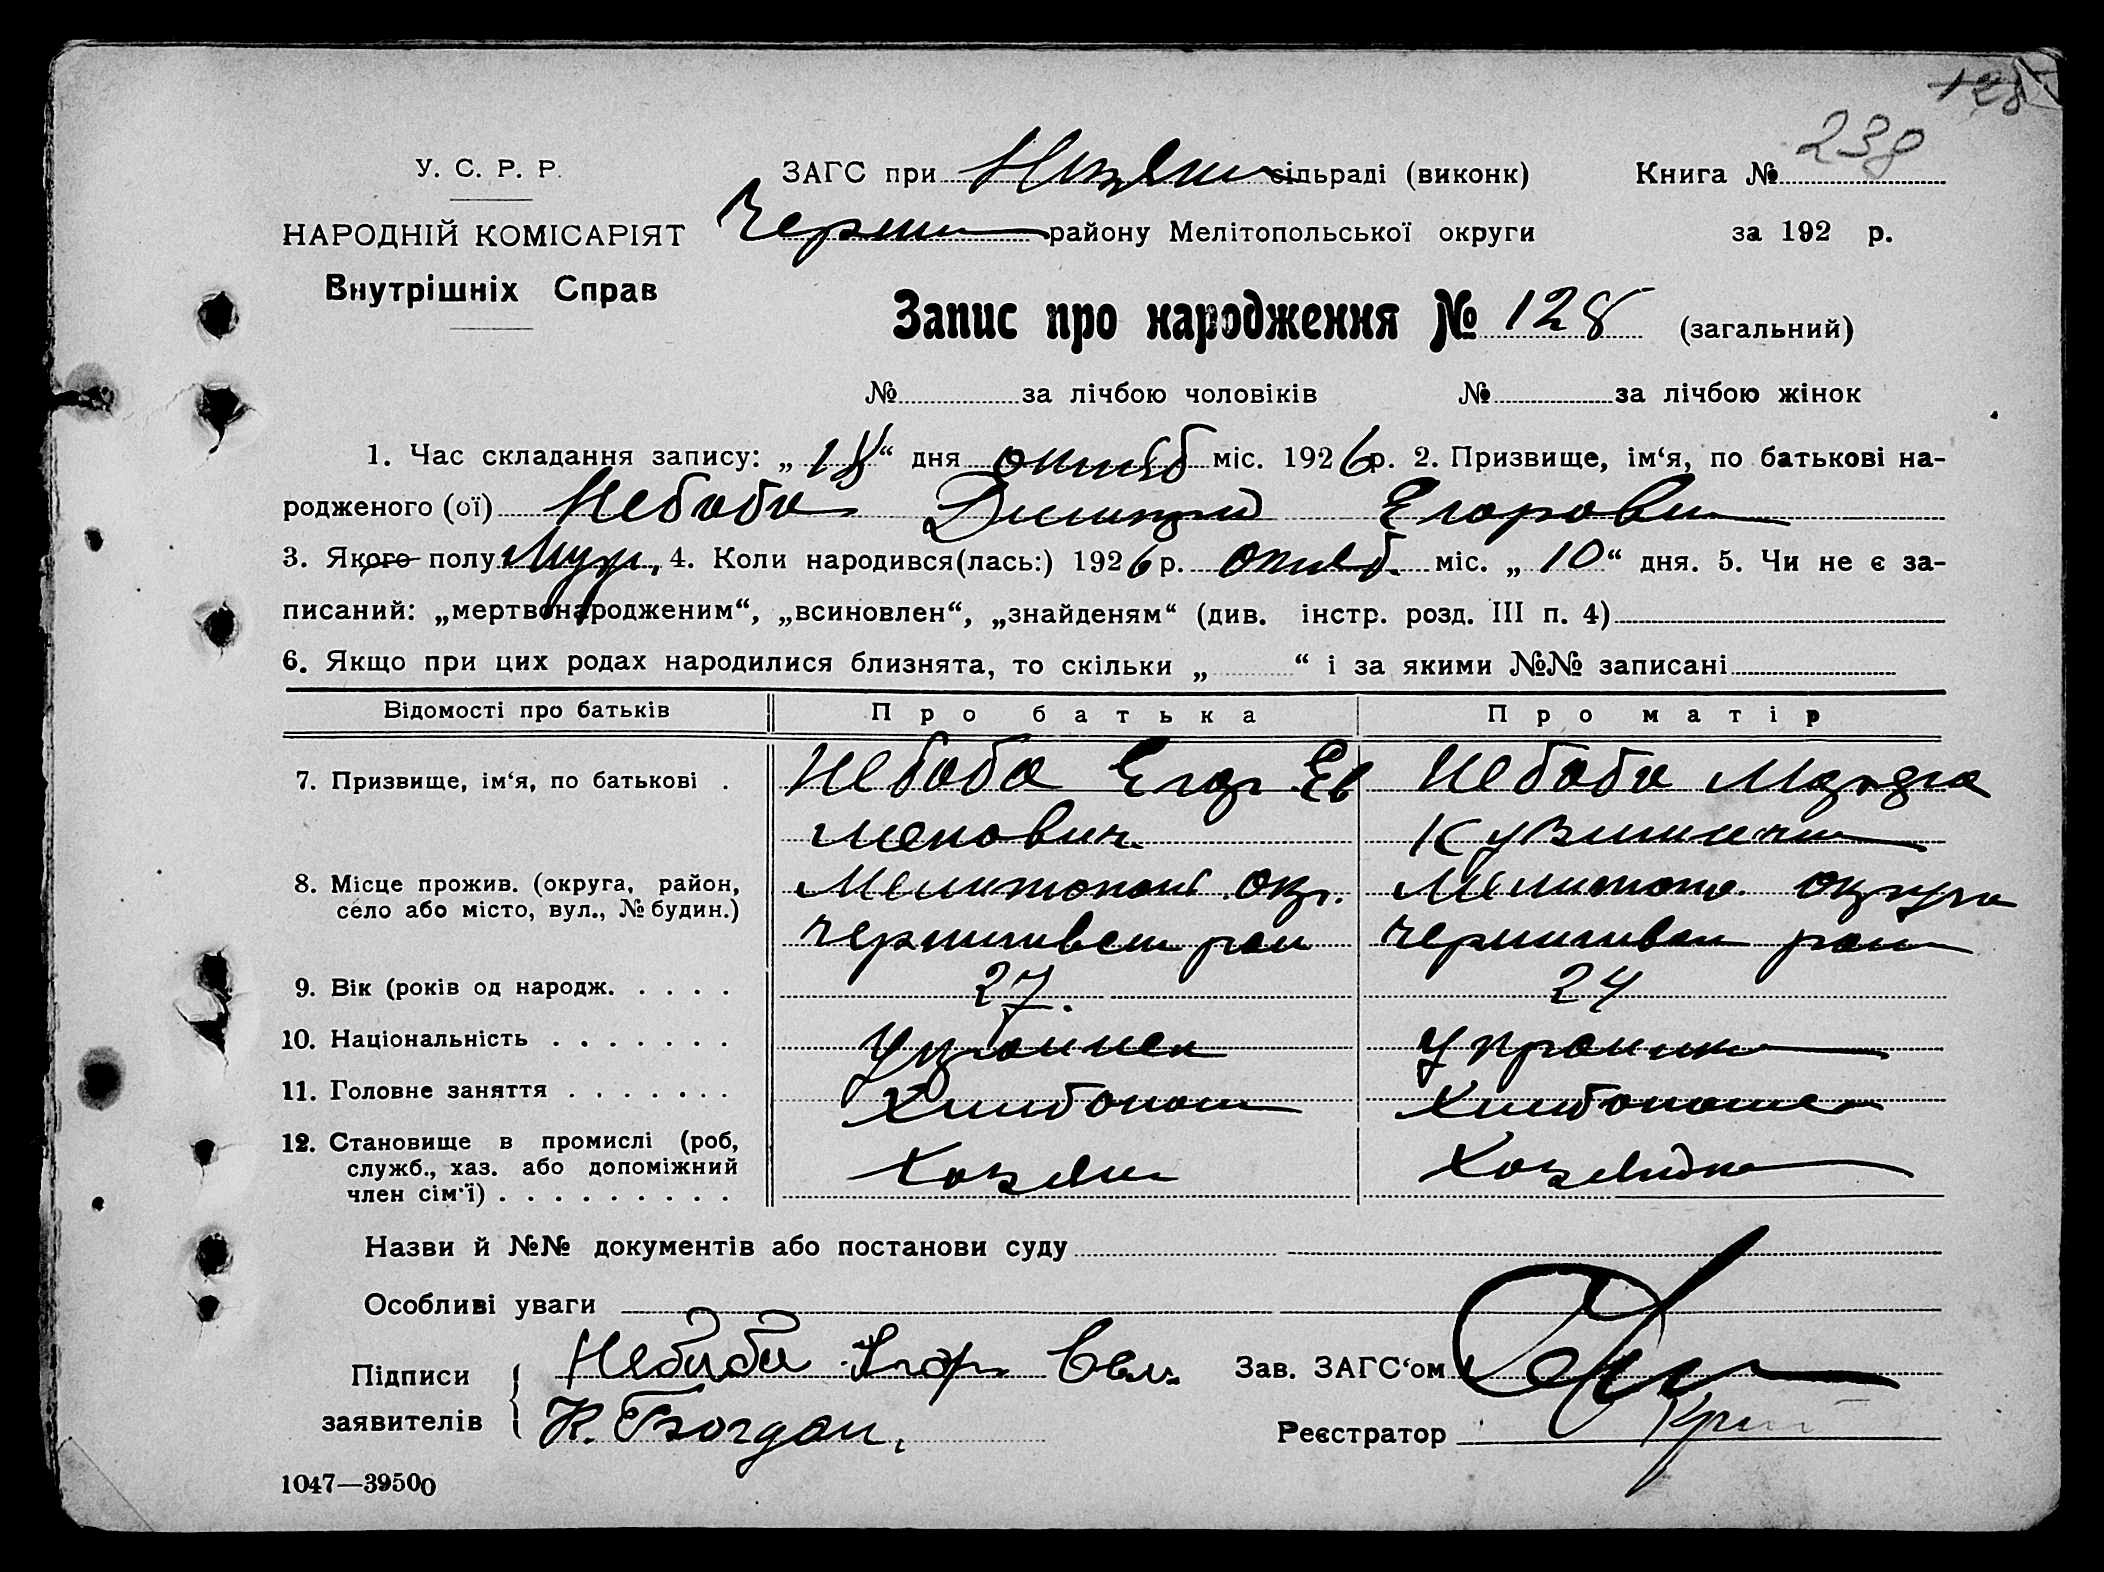 128
238
У. С. Р. Р.
ЗАГС при сільраді (виконк) Книга №
НАРОДНІЙ КОМІСАРІЯТ
Черни району Мелітопольської округи за 192 р.
Внутрішніх Справ
Запис про народження № 128 (загальний)
№ за лічбою чоловіків № за лічбою жінок
1. Час складання запису: „18“ дня октяб міс. 1926 р. 2. Призвище, ім‘я, по батькові на-
родженого (ої) Небаба Димитрий Егорови
3. Якого полу Муж., 4. Коли народився(лась:) 1926 р. октяб. міс. „10“ дня. 5. Чи не є за-
писаний: „мертвонародженим“, „всиновлен“, „знайденям“ (див. інстр. розд. III п. 4)
6. Якщо при цих родах народилися близнята, то скільки „ “ і за якими №№ записані
Відомості про батьків Про батька Про матір
7. Призвище, ім‘я, по батькові . Небаба Егор Ев Небаба
менович
8. Місце прожив. (округа, район, Мелитопол. окр. Мелитопо. округа
село або місто, вул., № будин.)
Черниговск рай Черниговск рай
9. Вік (років од народж. . . . . 27. 24
10. Національність . . . . . . . Украинец Украинка
11. Головне заняття . . . . . . . Хлебопаш
12. Становище в промислі (роб,
служб., хаз. або допоміжний Хозяин Хозяйка
член сім‘ї) . . . . . . . . .
Назви й №№ документів або постанови суду
Особливі уваги
Підписи Небаба Егор Зав. ЗАГС‘ом
заявителів К. Богдан.
Реєстратор
1047—39500